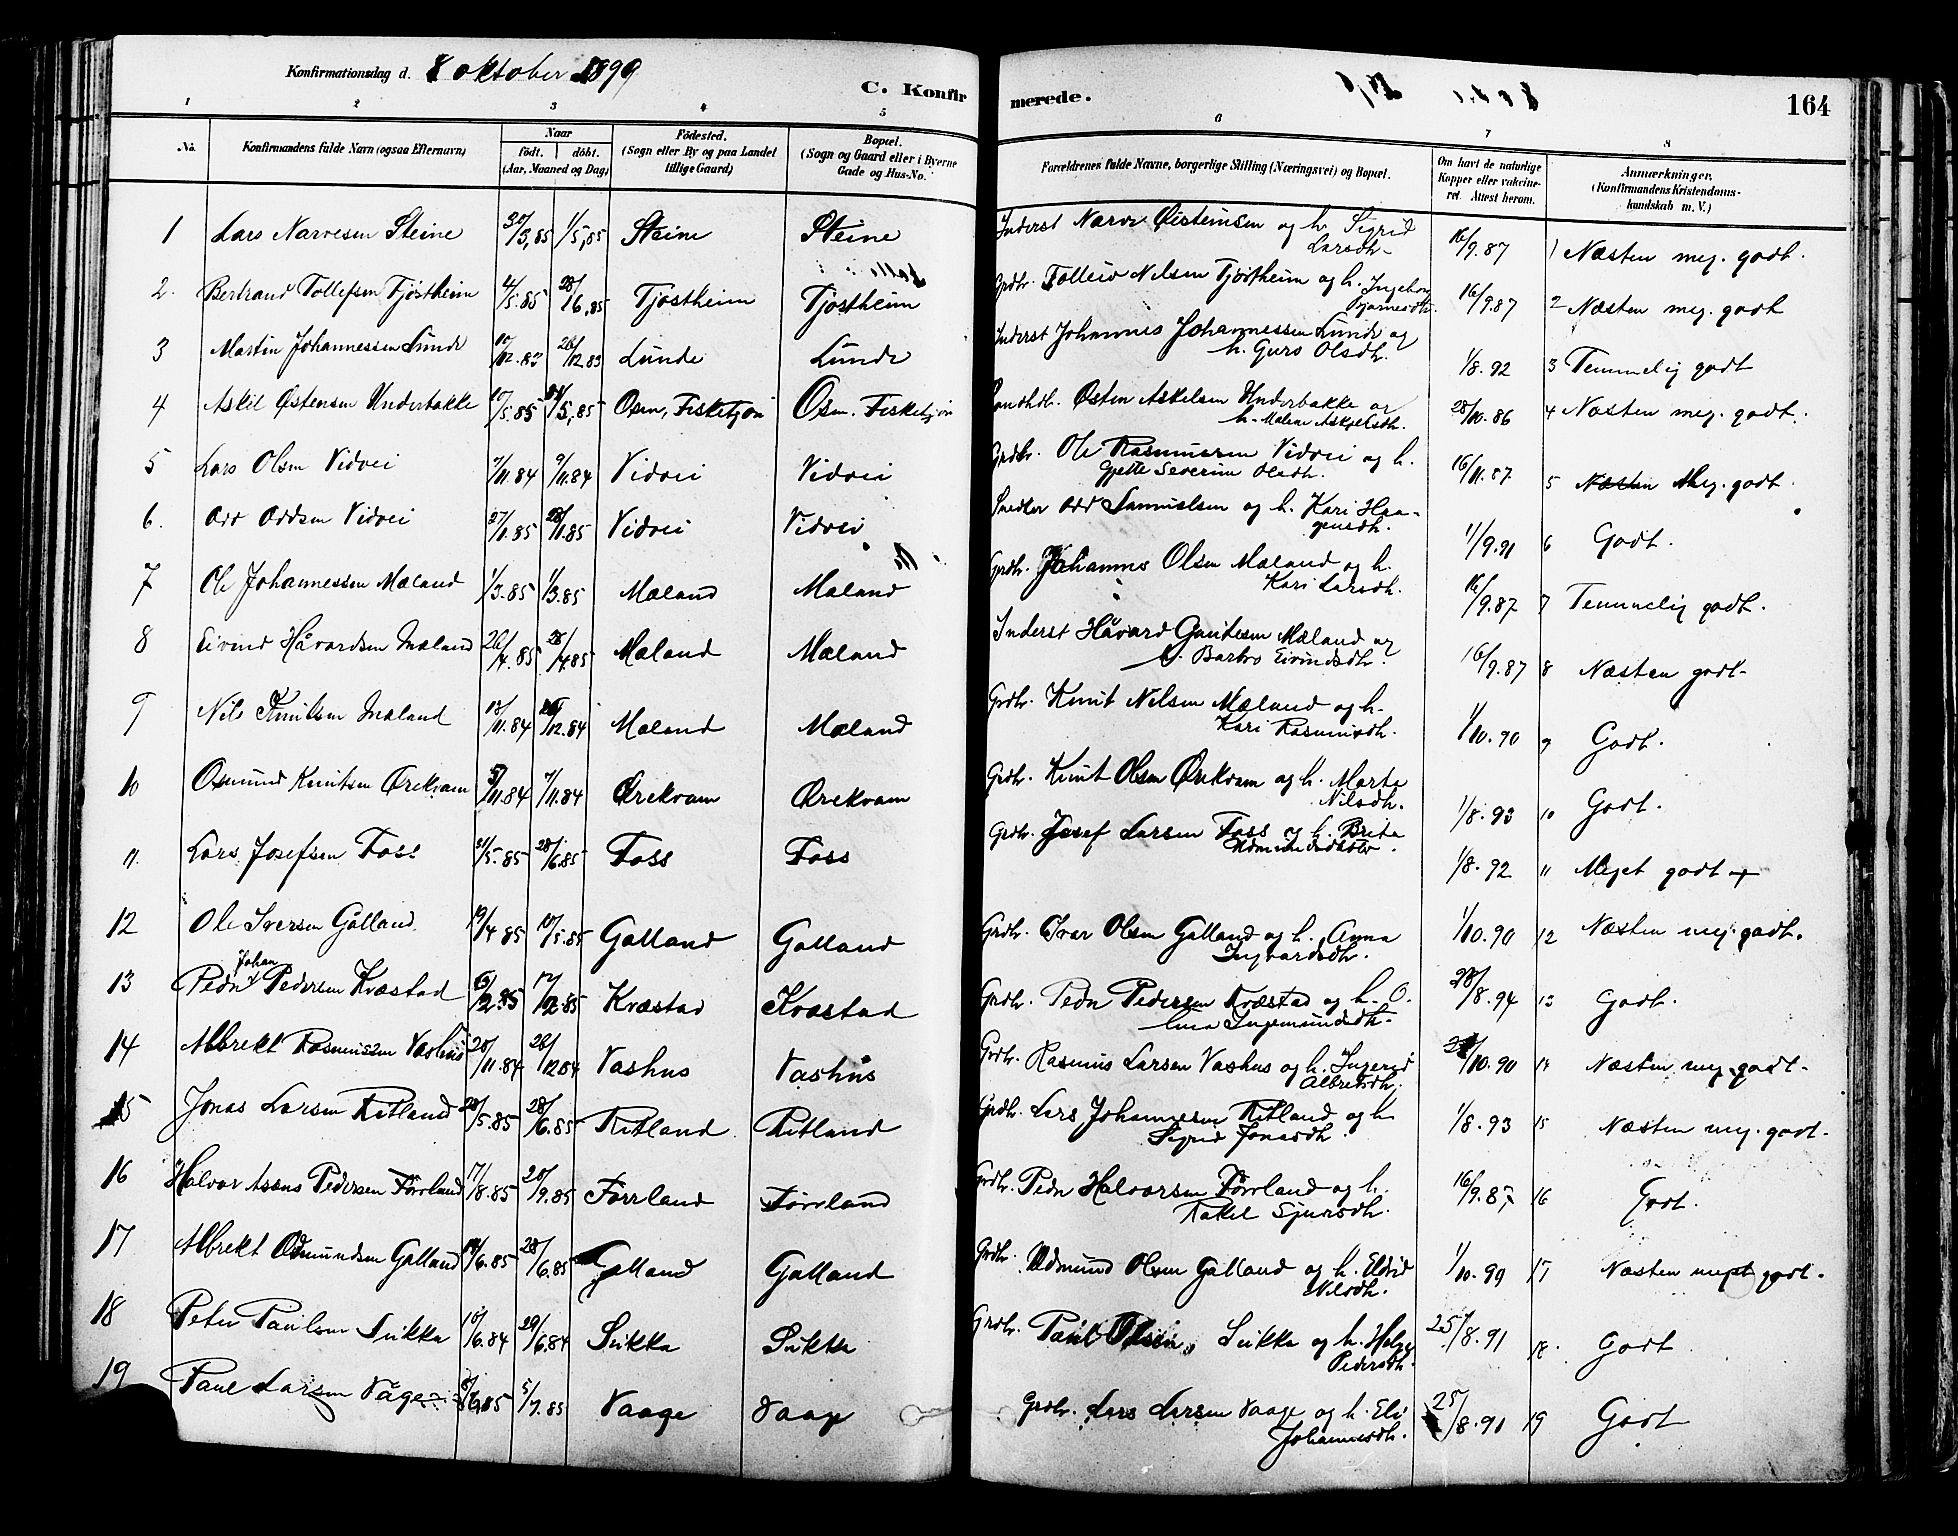 Konfirmationsdag d. 8 oktober 1899
C. Konfirmerede.
164
1 2 3 4 5 6 7 8
No.
Konfirmandens fulde Navn (ogsaa Efternavn)
Naar
födt. döbt.
(Aar, Maaned og Dag)
Födested.
(Sogn eller By og paa Landet
tillige Gaard)
Bopæl.
(Sogn og Gaard eller i Byerne
Gade og Hus-No.
Forældrenes fulde Navne, borgerlige Stilling (Næringsvei) og Bopæl.
Om havt de naturlige
Kopper eller vakcine-
ret. Attest herom.
Anmærkninger.
(Konfirmandens Kristendoms-
kundskab m. V.)
1 Lars Narvesen Steine 30/3,85 1/5,85 Steine Steine Inderst Narve Øisteinsen og h. Sigrid Larsdh. 16/9.87 1 Næsten meg. godt.
2. Bertrand Tollefsen Tjøstheim 4/5.85 28/6,85 Tjøstheim Tjøstheim Grdbr. Tolleiv Nilsen Tjøstheim og h. Ingeborg Bjarnesdh. 16/9.87 2 Næsten meg. godt
3 Martin Johannessen Lunde 10/12.83 26/12.83 Lunde Lunde Inderst Johannes Johannessen Lunde og h. Guro Olsdh. 1/8.92 3 Temmelig godt
4 Askil Østensen Underbakke 10/5.85 /5,85 Osen, Fisketjøn Osen. Fisketjøn Østen Askelsen Underbakke og h. Malene Askjelsdh. 28/10.86 4 Næsten meg. godt.
5 Lars Olsen Vidvei 7/11.84 9/11.84 Vidvei Vidvei Grdbr. Ole Rasmussen Vidvei og h. Gjette Severine Olsdh. 16/11.87 5 Næsten Meg. godt.
6. Odd Oddsen Vidvei 27/1.85 28/1.85 Vidvei Vidvei Snedker Odd Samuelsen og h. Kari Haagensdh. 1/9.91 6 Godt.
7 Ole Johannessen Mæland 1/3.85 1/3.85 Mæland Mæland Grdbr. Johannes Olsen Mæland og h. Kari Larsdh. 16/9.87 7 Temmelig godt.
8 Eivind Håvardsen Mæland 26/4.85 28/4.85 Mæland Mæland Inderst Håvard Gautesen Mæland og h. Barbro Eivindsdh. 16/9.87 8 Næsten godt.
9 Nils Knutsen Mæland 18/11.84 /12.84 Mæland Mæland Grdbr. Knut Nilsen Mæland og h. Kari Rasmusdh. 1/10.90 9 Godt.
10 Osmund Knutsen Ørekvam 5/11.84 7/11.84 Ørekvam Ørekvam Grdbr. Knut Olsen Ørekvam og h. Marta Nilsdh. 1/8.93 10 Godt.
11. Lars Josefsen Foss 31/5.85 28/6.85 Foss Foss Grdbr. Josef Larsen Foss og h. Brita 1/8.92 11 Meget godt +
12 Ole Iversen Galland 19/4.85 10/5.85 Galland Galland Grdbr. Ivar Olsen Galland og h. Anna Ingvardsdh. 1/10.90 12 Næsten meg. godt.
13 Peder Johan Pedersen Kvæstad 6/12.85 17/12.85 Kvæstad Kvæstad Grdbr. Peder Pedersen Kvæstad og h. O- Ingemundsdh. 28/8.94 13 Godt.
14 Albrekt Rasmussen Vashus 20/11.84 26/12 84 Vashus Vashus Grdbr. Rasmus Larsen Vashus og h. Ingerid Albretsdh. /10.90 14 Næsten meg. godt.
15 Jonas Larsen Ritland 28/5.85 28/6.85 Ritland Ritland Grdbr. Lars Johannessen Ritland og h Sigrid Jonasdh. 1/8.93 15 Næsten meg. godt.
16 Halvar Asens Pedersen Førrland 17/8.85 20/9.85 Førrland Førrland Grdbr. Peder Halvorsen Førrland og h. Rakel Sjursdh. 16/9.87 16 Godt.
17 Albrekt Odmundsen Galland 14/6.85 28/6.85 Galland Galland Grdbr. Odmund Olsen Galland og h. Eldrid Nilsdh. 1/10.99 17 Næsten meget godt.
18 Peter Paulsen Sukka 10/6.84 29/6.84 Sukka Sukka Grdbr. Paul Olsen, Sukka og h. Helga Pedersdh. 25/8.91 18. Godt
19 Paul Larsen Våge 8/6.85 5/7.85 Vaage Vaage Grdbr. Lars Larsen Vaage og h. Eli Johannesdh. 25/8.91 19 Godt